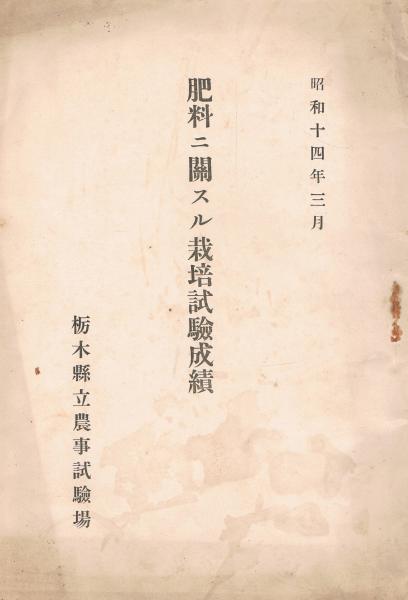 昭和十四年三月
肥料ニ關スル栽培試驗成績
栃木縣立農事試驗場